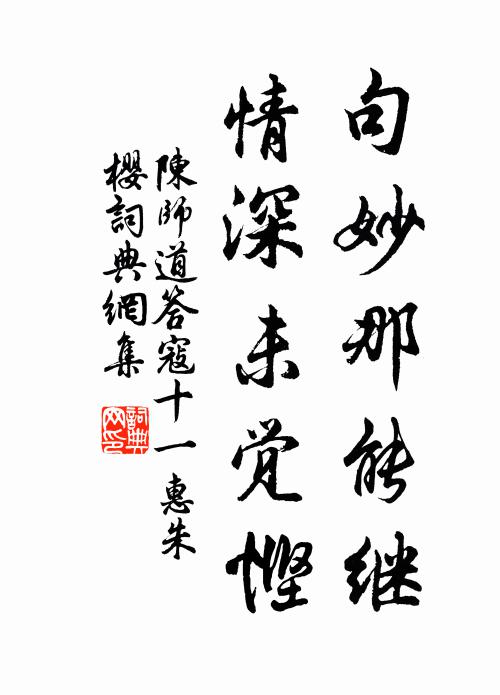 句妙那能继
情深未觉悭
陳師道答寇十一 惠朱
櫻詞典網集
詞典网印